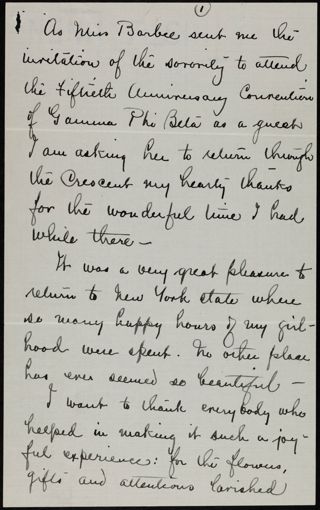 1
As Miss Barbee sent me the
invitation of the sorority to attend
the Fiftieth Anniversary Convention
of Gamma Phi Beta as a guest
I am asking her to return through
the Crescent my hearty thanks
for the wonderful time I had
while there —
It was a very great pleasure to
return to New York state where
so many happy hours of my girl-
hood were spent. No other place
has ever seemed so beautiful —
I want to thank everybody who
helped in making it such a joy-
ful experience: for the flowers,
gifts and attentions lavished